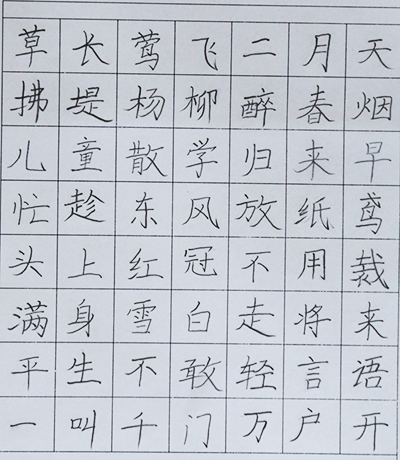 草长莺飞二月天
拂堤杨柳醉春烟
儿童散学归来早
忙趁东风放纸鸢
头上红冠不用裁
满身雪白走将来
平生不敢轻言语
一叫千门万户开